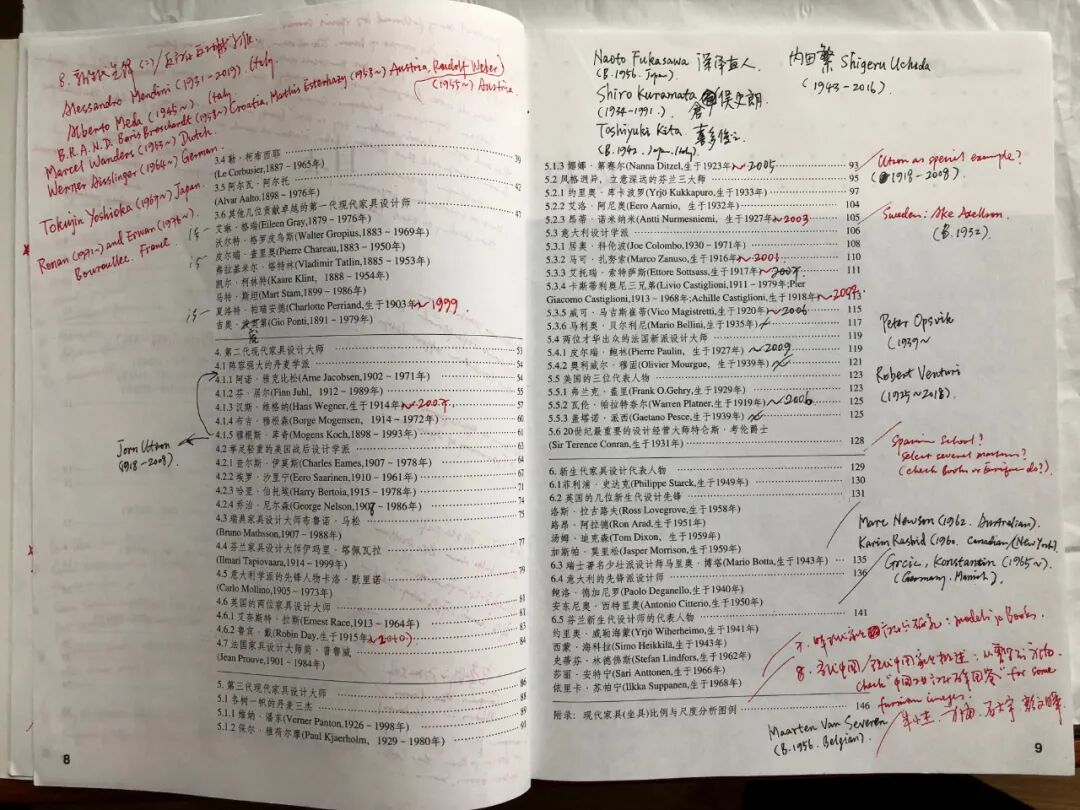 Alessandro Mendini (1931-2019). Italy.
Alberto Meda (1945~). Italy
B.R.A.N.D. Boris Broschardt (1958~) Croatia, Mathis Esterhazy (1958~) Austria, Raudolf Weber)
(1955~) Austria.
Marcel Wanders (1963~) Dutch.
Werner Aisslinger (1964~) German.
Tokujin Yoshioka (1967~) Japan.
Ronan (1971~) and Erwan (1976~)
Bouroullec. France
3.4 勒·柯布西耶 39
(Le Corbusier,1887－1965年)
3.5 阿尔瓦·阿尔托 42
(Alvar Aalto,1898－1976年)
3.6 其他几位贡献卓越的第一代现代家具设计师 47
艾琳·格瑞(Eileen Gray,1879－1976年)
沃尔特·格罗皮乌斯(Walter Gropius,1883－1969年)
皮尔瑞·查里奥(Pierre Chareau,1883－1950年)
弗拉基米尔·塔特林(Vladimir Tatlin,1885－1953年)
凯尔·柯林特(Kaare Klint, 1888－1954年)
马特·斯坦(Mart Stam,1899－1986年)
夏洛特·帕瑞安德(Charlotte Perriand,生于1903年)~1999
吉奥·波蒂第(Gio Ponti,1891－1979年)
4. 第二代现代家具设计大师 53
4.1 阵容强大的丹麦学派 54
4.1.1 阿诺·雅克比松(Arne Jacobsen,1902－1971年) 54
4.1.2 芬·居尔(Finn Juhl, 1912－1989年) 55
4.1.3 汉斯·维格纳(Hans Wegner,生于1914年)~2007. 57
4.1.4 布吉·穆根森(Borge Mogensen, 1914－1972年) 60
4.1.5 穆根斯·库奇(Mogens Koch,1898－1993年) 61
Jørn Utzon
(1918-2008).
4.2 举足轻重的美国战后设计学派 63
4.2.1 查尔斯·伊莫斯(Charles Eames,1907－1978年) 64
4.2.2 埃罗·沙里宁(Eero Saarinen,1910－1961年) 67
4.2.3 哈里·伯托埃(Harry Bertoia,1915－1978年) 71
4.2.4 乔治·尼尔森(George Nelson,1908－1986年) 74
4.3 瑞典家具设计大师布鲁诺·马松 75
(Bruno Mathsson,1907－1988年)
4.4 芬兰家具设计大师伊玛里·塔佩瓦拉 77
(Ilmari Tapiovaara,1914－1999年)
4.5 意大利学派的先锋人物卡洛·默里诺 79
(Carlo Mollino,1905－1973年)
4.6 英国的两位家具设计大师 81
4.6.1 艾奈斯特·拉斯(Ernest Race,1913－1964年) 81
4.6.2 鲁宾·戴(Robin Day,生于1915年)~2010 83
4.7 法国家具设计大师简·普鲁威 84
(Jean Prouve,1901－1984年)
5. 第三代现代家具设计大师 86
5.1 各树一帜的丹麦三杰 88
5.1.1 维纳·潘东(Verner Panton,1926－1998年) 89
5.1.2 保尔·雅荷尔摩(Paul Kjaerholm, 1929－1980年) 91
8
Naoto Fukasawa 深泽直人.
(B.1956. Japan).
Shiro Kuramata 仓俣史朗.
(1934-1991.)
Toshiyuki Kita. 喜多俊之
(B.1942. Japan. Italy).
内田繁 Shigeru Uchida
(1943-2016).
5.1.3 娜娜·第塞尔(Nanna Ditzel,生于1923年)~2005 93
5.2 风格迥异，立意深远的芬兰三大师 95
5.2.1 约里奥·库卡波罗(Yrjö Kukkapuro,生于1933年) 97
5.2.2 艾洛·阿尼奥(Eero Aarnio, 生于1932年) 104
5.2.3 昂蒂·诺米纳米(Antti Nurmesniemi, 生于1927年)~2003 105
5.3 意大利设计学派 106
5.3.1 居奥·科伦波(Joe Colombo,1930－1971年) 108
5.3.2 马可·扎努索(Marco Zanuso,生于1916年)~2001 110
5.3.3 艾托瑞·索特萨斯(Ettore Sottsass,生于1917年)~2007 111
5.3.4 卡斯蒂利奥尼三兄弟(Livio Castiglioni,1911－1979年;Pier
Giacomo Castiglioni,1913－1968年;Achille Castiglioni,生于1918年)~2002 113
5.3.5 威可·马吉斯崔蒂(Vico Magistretti,生于1920年)~2006 115
5.3.6 马利奥·贝尔利尼(Mario Bellini,生于1935年) 117
5.4 两位才华出众的法国新派设计大师 119
5.4.1 皮尔瑞·鲍林(Pierre Paulin, 生于1927年)~2009 119
5.4.2 奥利威尔·穆固(Olivier Mourgue, 生于1939年) 121
5.5 美国的三位代表人物 123
5.5.1 弗兰克·盖里(Frank O.Gehry,生于1929年) 123
5.5.2 瓦伦·帕拉特奈尔(Warren Platner,生于1919年)~2006 125
5.5.3 盖塔诺·派西(Gaetano Pesce,生于1939年) 125
5.6 20世纪最重要的设计经营大师特仑斯·考伦爵士
(Sir Terence Conran,生于1931年) 128
6. 新生代家具设计代表人物 129
6.1 菲利浦·史达克(Philippe Starck,生于1949年) 130
6.2 英国的几位新生代设计先锋 131
洛斯·拉古路夫(Ross Lovegrove,生于1958年)
路昂·阿拉德(Ron Arad,生于1951年)
汤姆·迪克森(Tom Dixon, 生于1959年)
加斯帕·莫里松(Jasper Morrison,生于1959年)
6.3 瑞士著名少壮派设计师马里奥·博塔(Mario Botta,生于1943年) 135
6.4 意大利的先锋派设计师 136
鲍洛·德加尼罗(Paolo Deganello,生于1940年)
安东尼奥·西特里奥(Antonio Citterio,生于1950年)
6.5 芬兰新生代设计师的代表人物 141
约里奥·威勒海蒙(Yrjö Wiherheimo,生于1941年)
西蒙·海科拉(Simo Heikkilä,生于1943年)
史蒂芬·林德佛斯(Stefan Lindfors,生于1962年)
莎丽·安特宁(Sari Anttonen,生于1966年)
依里卡·苏帕宁(Ilkka Suppanen,生于1968年)
附录: 现代家具(坐具)比例与尺度分析图例 146
Utzon as special example?
(1918-2008).
Sweden: Ake Axelsson.
(B.1932).
Peter Opsvik
(1939~
Robert Venturi
(1925~2018).
Spanish School?
Select several masters?
(check Books or Enrique do?).
Marc Newson (1962. Australian).
Karim Rashid (1960. Canadian/(New York).
Grcic, Konstantin (1965~)
(Germany. Munich).
models is Books.
for some
furniture images.
Maarten Van Severen
(B.1956. Belgian)
9